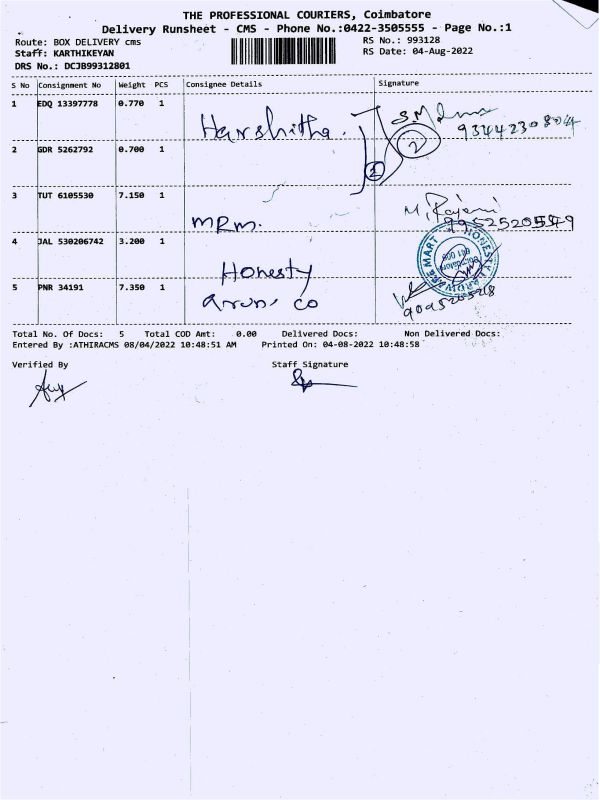 THE PROFESSIONAL COURIERS, Coimbatore
Delivery Runsheet - CMS - Phone No.:0422-3505555 - Page No.:1
Route: BOX DELIVERY cms
RS No.: 993128
Staff: KARTHIKEYAN
RS Date: 04-Aug-2022
DRS No.: DCJB99312801
S No Consignment No Weight PCS Consignee Details Signature
1 EDQ 13397778 0.770 1
Harshitha.
S.M
9344230804
2 GDR 5262792 0.700 1
1 2
3 TUT 6105530 7.150 1
MRM.
M. Rajani
4 JAL 530206742 3.200 1
Honesty
HONESTY HARDWARE MART
5 PNR 34191 7.350 1
Arun, co
Total No. Of Docs: 5 Total COD Amt: 0.00 Delivered Docs: Non Delivered Docs:
Entered By :ATHIRACMS 08/04/2022 10:48:51 AM Printed On: 04-08-2022 10:48:58
Verified By Staff Signature